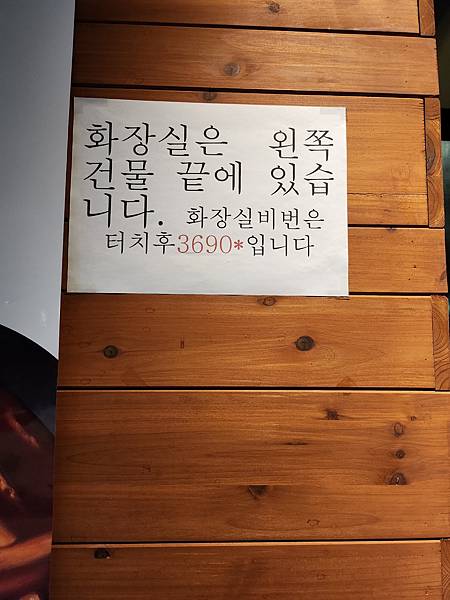 화장실은 왼쪽
건물 끝에 있습
니다. 화장실비번은
터치후3690*입니다